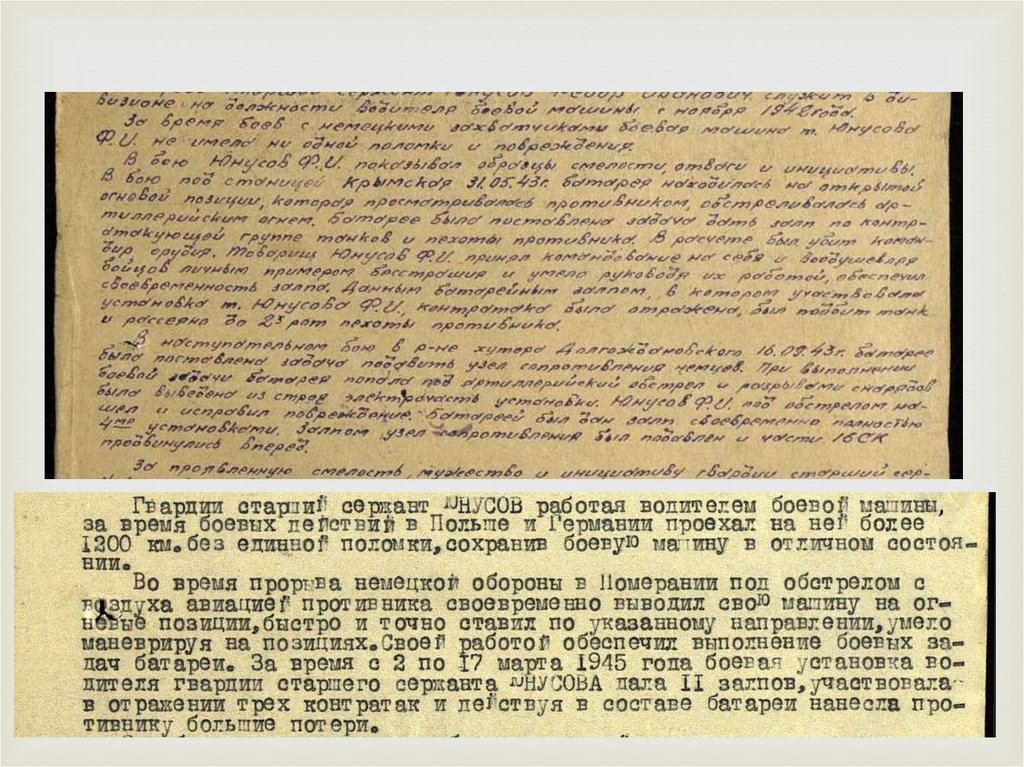 старший сержант Юнусов Иванович служит в ди-
визионе на должности водителя боевой машины с ноября 1942 года.
За время боев с немецкими захватчиками боевая машина т. Юнусова
Ф.И. не имела ни одной поломки и повреждения.
В бою Юнусов Ф.И. показывал образцы смелости, отваги и инициативы.
В бою под станицей Крымская 31.05.43г. батарея находилась на открытой
огневой позиции, которая просматривалась противником, обстреливалась ар-
тиллерийским огнем. Батарее была поставлена задача дать залп по контр-
атакующей группе танков и пехоты противника. В расчете был убит коман-
дир орудия. Товарищ Юнусов Ф.И. принял командование на себя и воодушевляя
бойцов личным примером бесстрашия и умело руководя их работой, обеспечил
своевременность залпа. Данным батарейным залпом, в котором участвовала
установка т. Юнусова Ф.И., контратака была отражена, был подбит танк
и рассеяно до 2х рот пехоты противника.
В наступательном бою в р-не хутора Долгождановского 16.09.43г. батарее
была поставлена задача подавить узел сопротивления немцев. При выполнении
боевой задачи батарея попала под артиллерийский обстрел и разрывами снарядов
была выведена из строя электрочасть установки. Юнусов Ф.И. под обстрелом на-
шел и исправил повреждение. Батареей был дан залп своевременно полностью
4мя установками. Залпом узел сопротивления был подавлен и части 16СК
продвинулись вперед.
За проявленную смелость, мужество и инициативу гвардии старший сер-
Гвардии старший сержант ЮНУСОВ работая водителем боевой машины,
за время боевых действий в Польше и Германии проехал на ней более
1200 км.без единной поломки,сохранив боевую машину в отличном состоя-
нии.
Во время прорыва немецкой обороны в Померании под обстрелом с
воздуха авиацией противника своевременно выводил свою машину на ог-
невые позиции,быстро и точно ставил по указанному направлении,умело
маневрируя на позициях.Своей работой обеспечил выполнение боевых за-
дач батареи. За время с 2 по 17 марта 1945 года боевая установка во-
дителя гвардии старшего сержанта ЮНУСОВА дала II залпов,участвовала
в отражении трех контратак и действуя в составе батареи нанесла про-
тивнику большие потери.